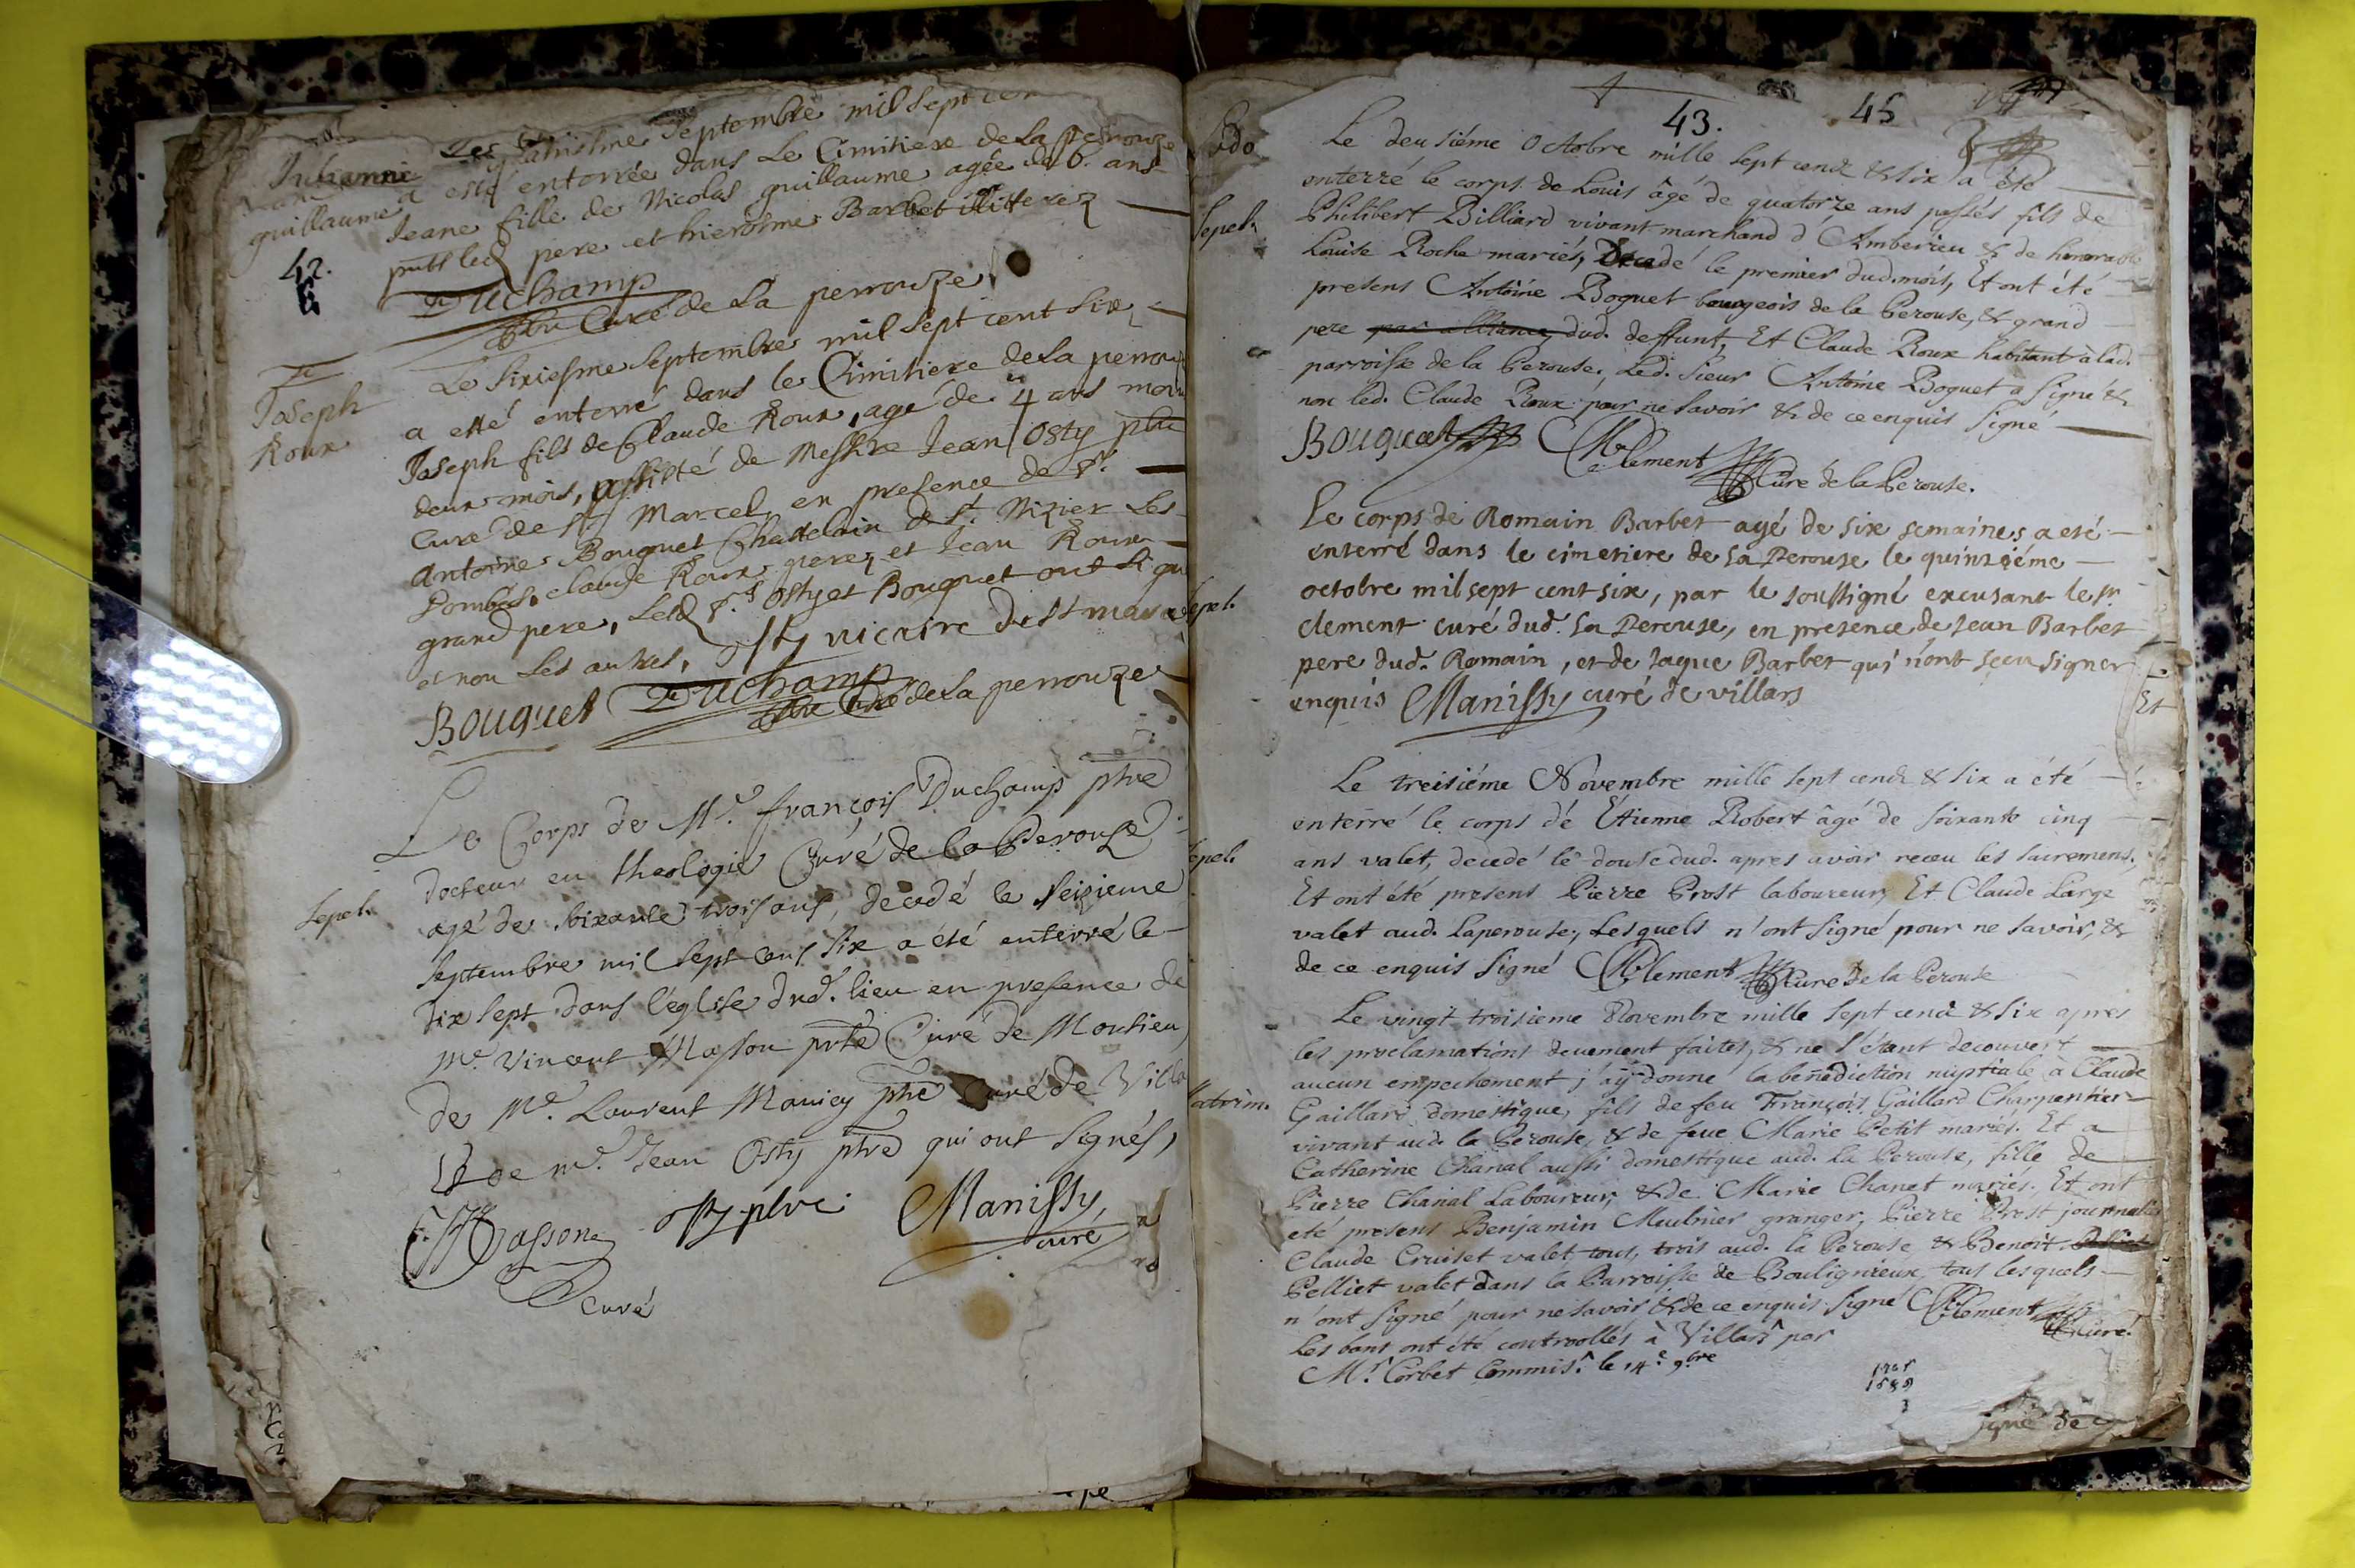 Le quatriesme Septembre mil Sept cen
a esté enterrée dans Le Cimitiere de La perrouze
Jeane fille de Nicolas guillaume agée de 6. ans
pnts led pere et hierosme Barbet illitterez
guillaume
42.
Duchamp
pbre Curé de La perrouze
Joseph
Roux
Le Sixiesme Septembre mil Sept cent Six
a esté enterré dans le Cimitiere de La perrouz
Joseph fils de Claude Roux, agé de 4 ans moin
deux mois, assisté de Messire Jean Osty pbre
Curé de St Marcel, en presence de Sr.
Antoine Bouquet Chattelain de St. Nizier Les
Dombes, claude Roux pere, et Jean Roux
grand pere, Lesd Srs Osty et Bouquet ont signé
et non Les autres, Osty vicaire de St marcel
Bouquet Duchamp
pbre Curé de La perrouze
Sepel.
Le Corps de Mre. françois Duchamp ptre
docteur en theologie Curé de la Perouze
agé de soixante trois ans, decedé le seizieme
septembre mil sept cens six a été enterré le
dix sept dans l'eglise dud. lieu en presence de
Mre Vincent Masson prtre Curé de Monlieu
de Mre. Laurent Manicy ptre Curé de Villa
Et de mre. Jean Osty ptre qui ont signés,
Masson osty ptre Manissy
curé
curé
43. 45
Le deusiéme Octobre mille sept cend & six a été
enterré le corps de Louis âgé de quatorze ans passés fils de
Sepel.
Philibert Billiard vivant marchand d'Amberieu & de honorable
Louise Roche mariés, Decedé le premier dud. mois, Et ont été
presens Antoine Boguet bourgeois de la Perouse, & grand
pere par alliance dud. deffunt, Et Claude Roux habitant à lad.
parroisse de la Perouse. Led. Sieur Antoine Boguet a signé &
non led. Claude Roux pour ne savoir & de ce enquis signé
Bouquet Clement Curé de la Perouse.
Sepel.
Le corps de Romain Barbet agé de six semaines a eté
enterré dans le cimetiere de La Perouze le quinziéme
octobre mil sept cent six, par le soussigné excusant le sr
clement curé dud. La Perouse, en presence de Jean Barbet
pere dud. Romain, et de Jaque Barbet qui n'ont sceu signer
enquis Manissy curé de villars
Et
Sepel.
Le treisiéme Novembre mille sept cend & six a été
enterré le corps d'Etienne Robert âgé de soixante cinq
ans valet, decedé le douse dud. apres avoir receu les sacremens,
Et ont été presens Pierre Prost laboureur, Et Claude Large
valet aud. Laperouse, Lesquels n'ont signé pour ne savoir, &
de ce enquis signé Clement Curé de la Perouse
Matrim.
Le vingt troisieme Novembre mille sept cend & six apres
les proclamations deuement faites, & ne s'étant decouvert
aucun empechement j'aÿ donné la benediction nuptiale à Claude
Gaillard domestique, fils de feu François Gaillard Charpentier
vivant aud. la Perouse, & de feue Marie Petit mariés. Et a
Catherine Chanal aussi domestique aud. la Perouse, fille de
Pierre Chanal Laboureur, & de Marie Chanet mariés. Et ont
eté presens Benjamin Meubnier granger, Pierre Prost journalier
Claude Cruiset valet tous, trois aud. la Perouse & Benoit
Pelliet valet dans la Parroisse de Boulignieux, tous lesquels
n'ont signé pour ne savoir & de ce enquis signé Clement
Curé.
Les bans ont été controollés à Villars par
Mr. Corbet Commis. le 14e 9bre
signé de